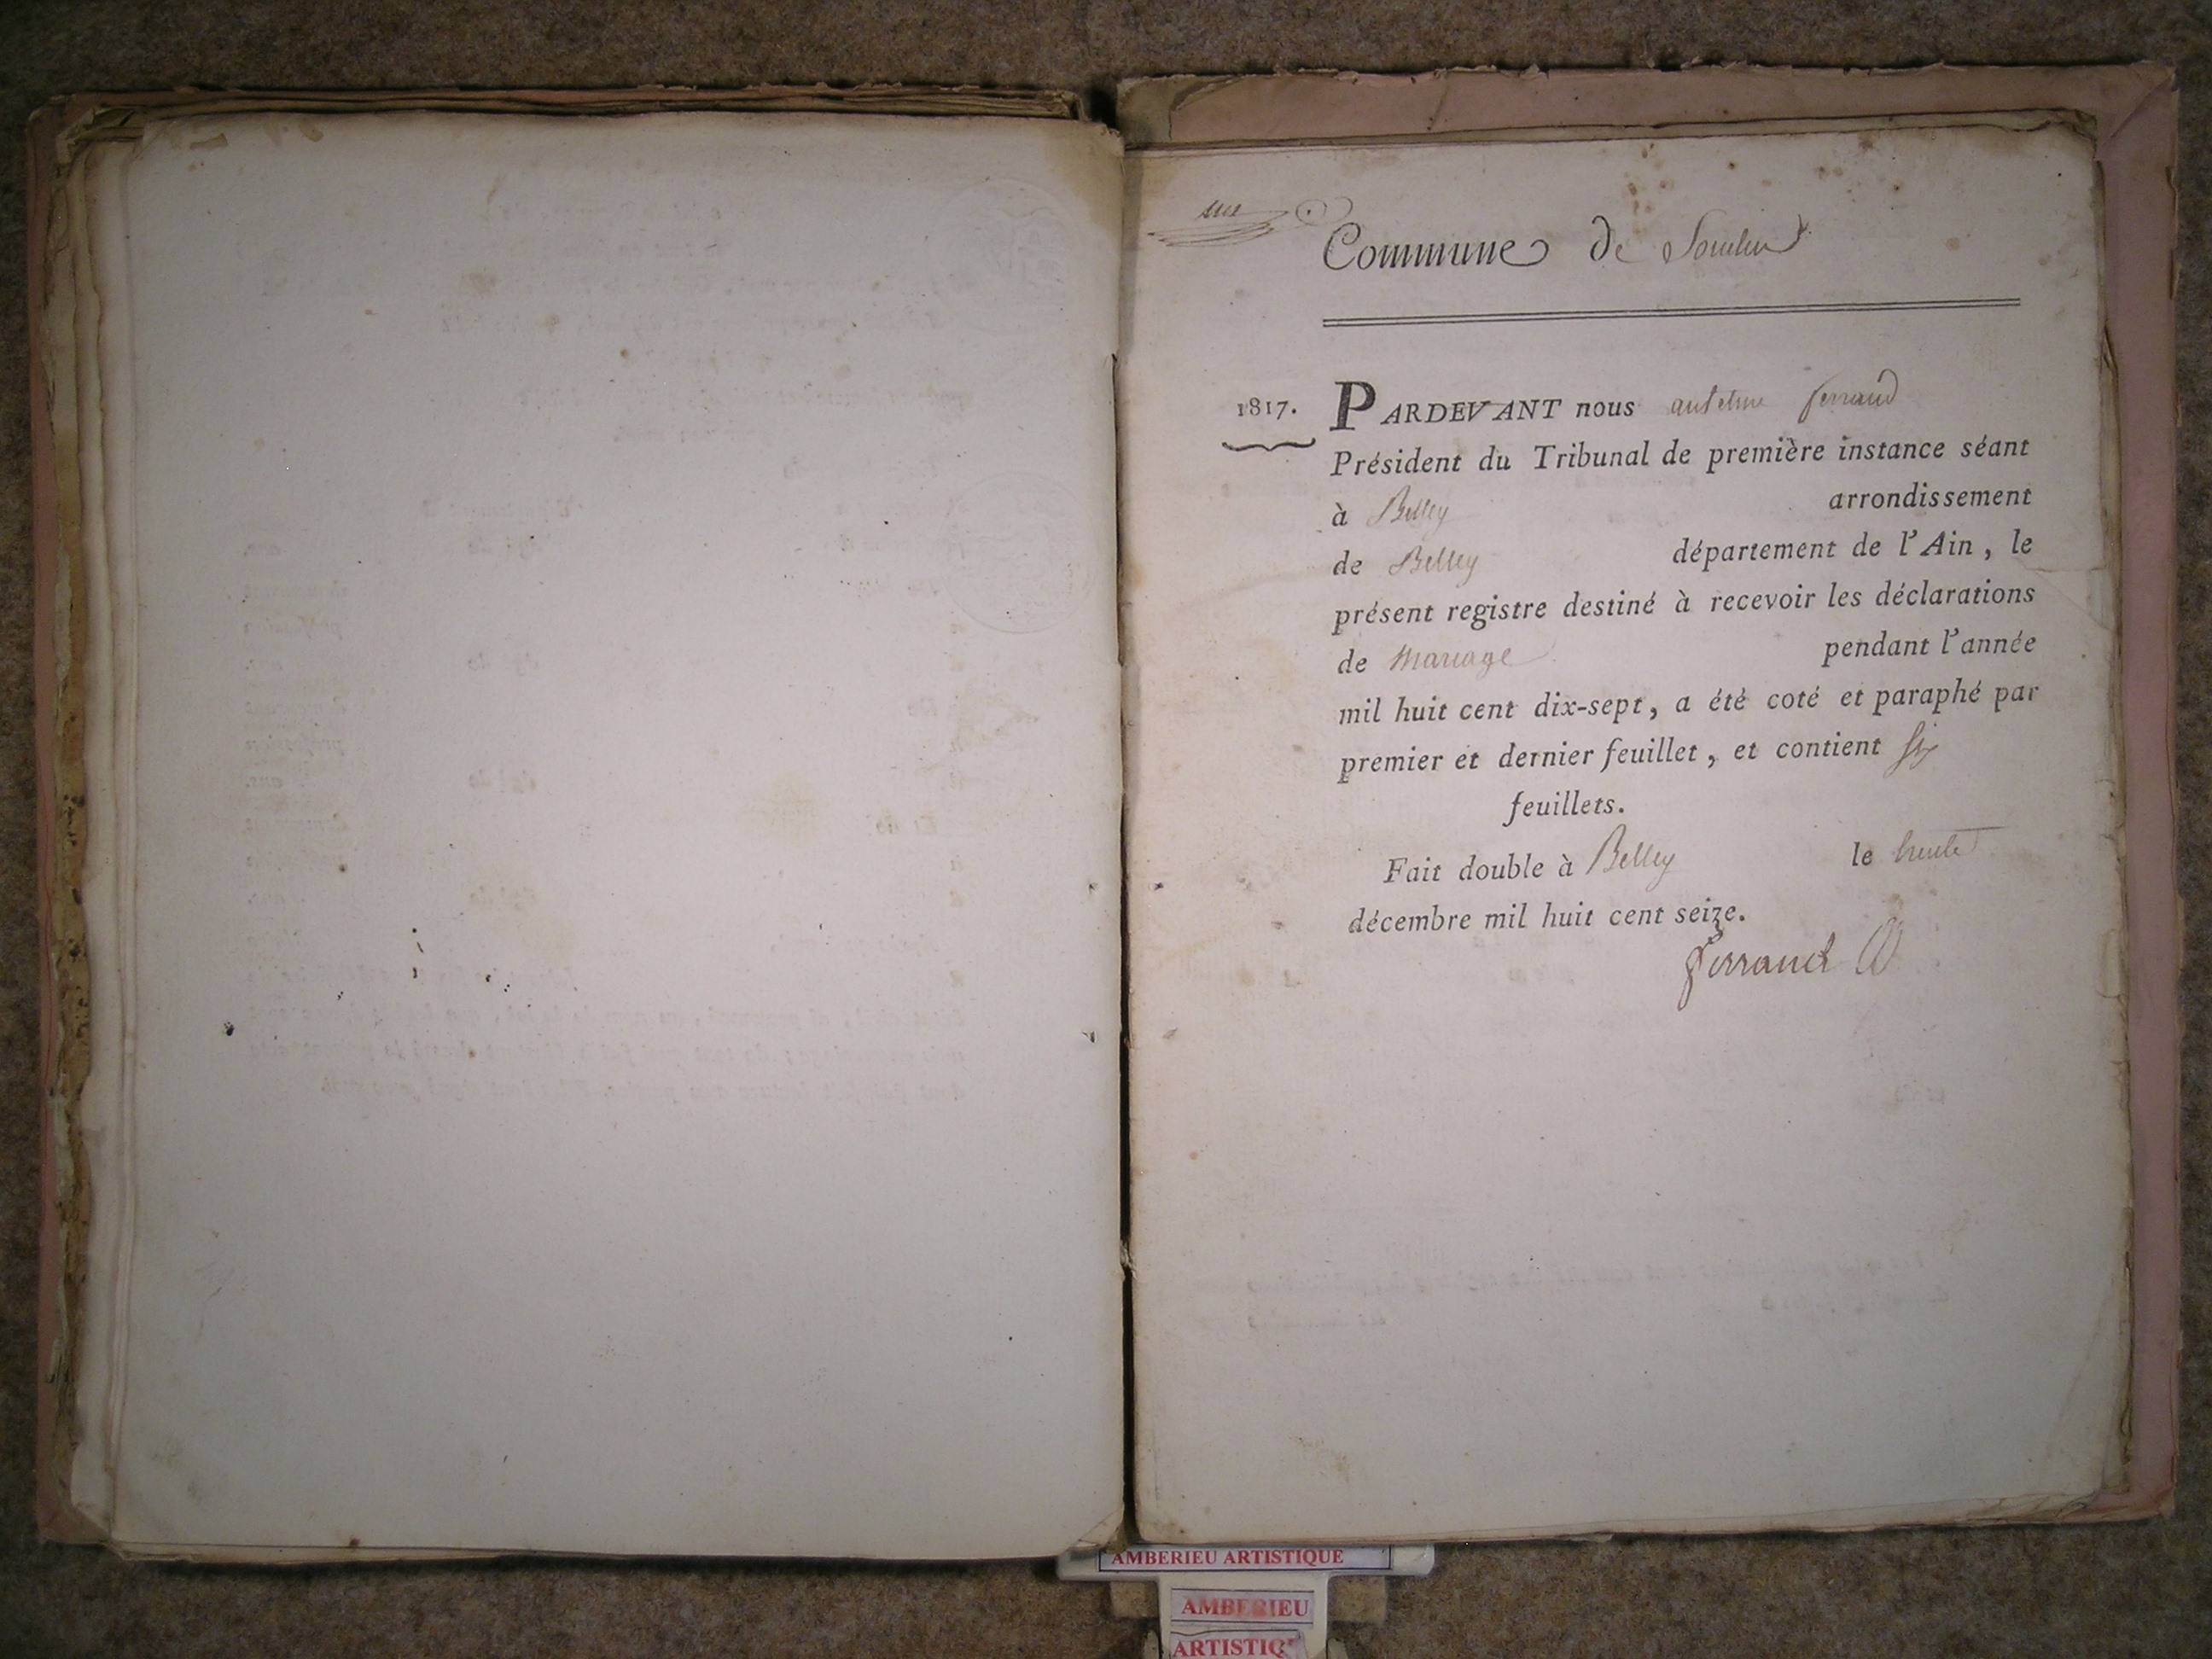 Commune de
1817. PARDEVANT nous anselme ferrand
Président du Tribunal de première instance séant
à Belley arrondissement
de Belley département de l'Ain, le
présent registre destiné à recevoir les déclarations
de Mariage pendant l'année
mil huit cent dix-sept, a été coté et paraphé par
premier et dernier feuillet, et contient six
feuillets.
Fait double à Belley le trente
décembre mil huit cent seize.
ferrand
AMBERIEU ARTISTIQUE
AMBERIEU
ARTISTIQ